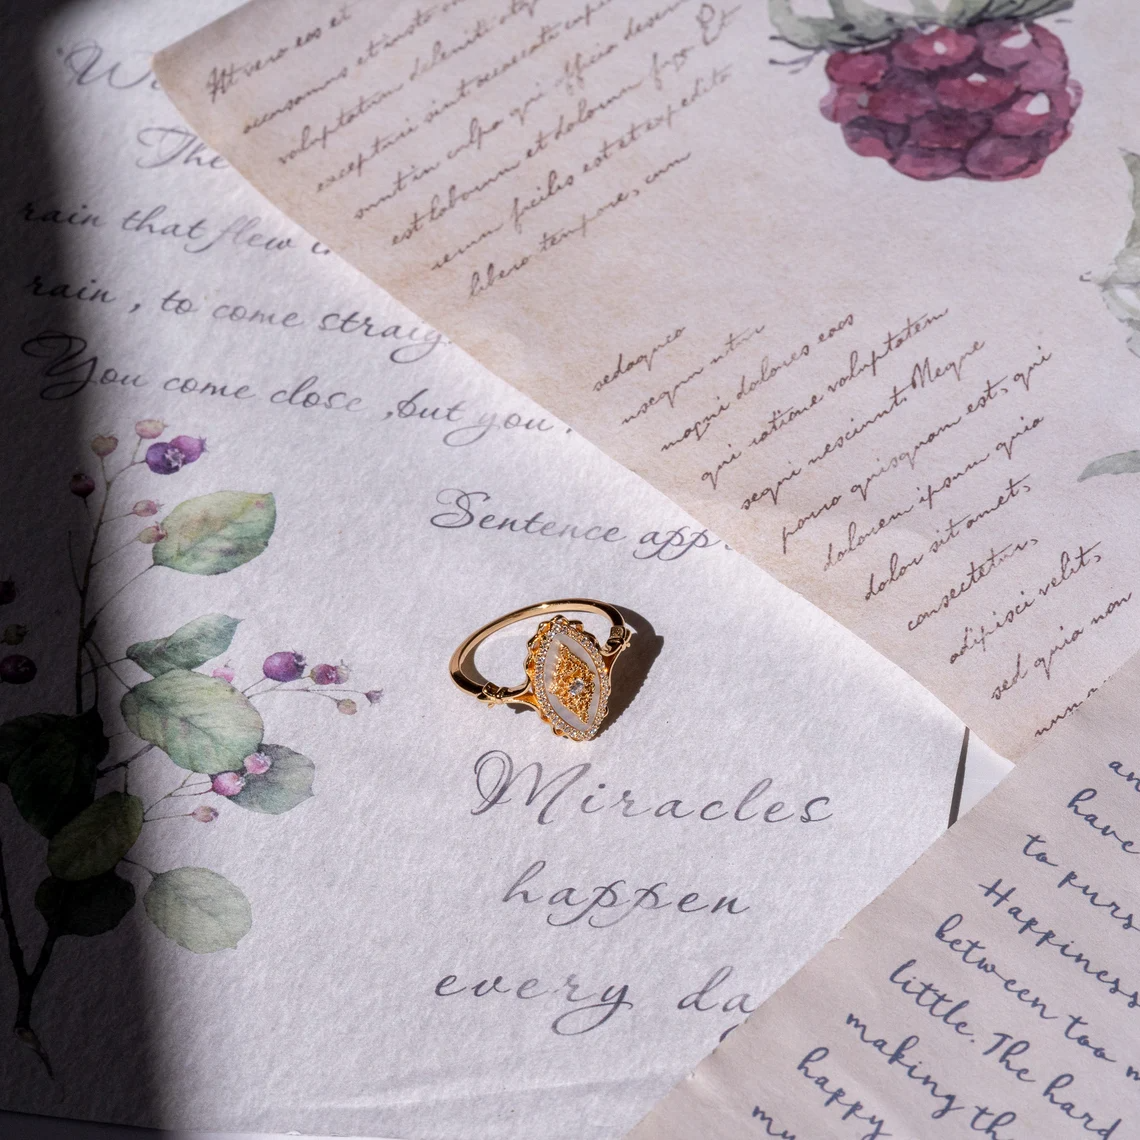 "W
The
rain that flew
rain , to come straig
You come close ,but you
Sentence app
Miracles
happen
every da
At vero eos et
accusamus et iusto
voluptatum deleniti
excepturi sint occaecati
sunt in culpa qui officia
est laborum et dolorum fuga. Et
rerum facilis est et expedita
libero tempore, cum
sed quia
magni dolores eos
qui ratione voluptatem
sequi nesciunt. Neque
porro quisquam est, qui
dolorem ipsum quia
dolor sit amet,
consectetur,
adipisci velit,
sed quia non
an
have
to purs
Happiness
between too
little. The hard
making th
happy
my